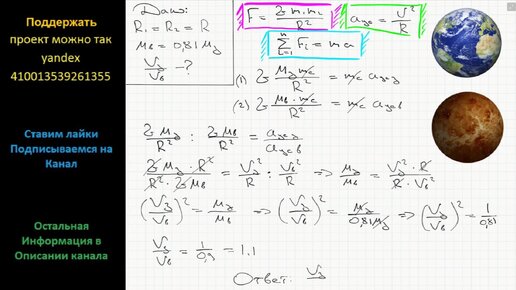 Поддержать
проект можно так
yandex
410013539261355
Ставим лайки
Подписываемся на
Канал
Остальная
Информация в
Описании канала
Дано:
R₁ = R₂ = R
Mв = 0,81 Mз
Vз/Vв - ?
F = G m₁m₂/R²
aцс = V²/R
∑ Fi = ma
(1) G Mз mc/R² = mc aцсз
(2) G Mв · mc/R² = mc aцсв
G Mз/R² : G Mв/R² = aцсз/aцсв
G Mз · R²/R² · G Mв = Vз²/R : Vв²/R ⇒ Mз/Mв = Vз² · R/R · Vв²
(Vз/Vв)² = Mз/Mв ⇒ (Vз/Vв)² = Mз/0,81Mз ⇒ (Vз/Vв)² = 1/0,81
Vз/Vв = 1/0,9 = 1.1
Ответ: Vз